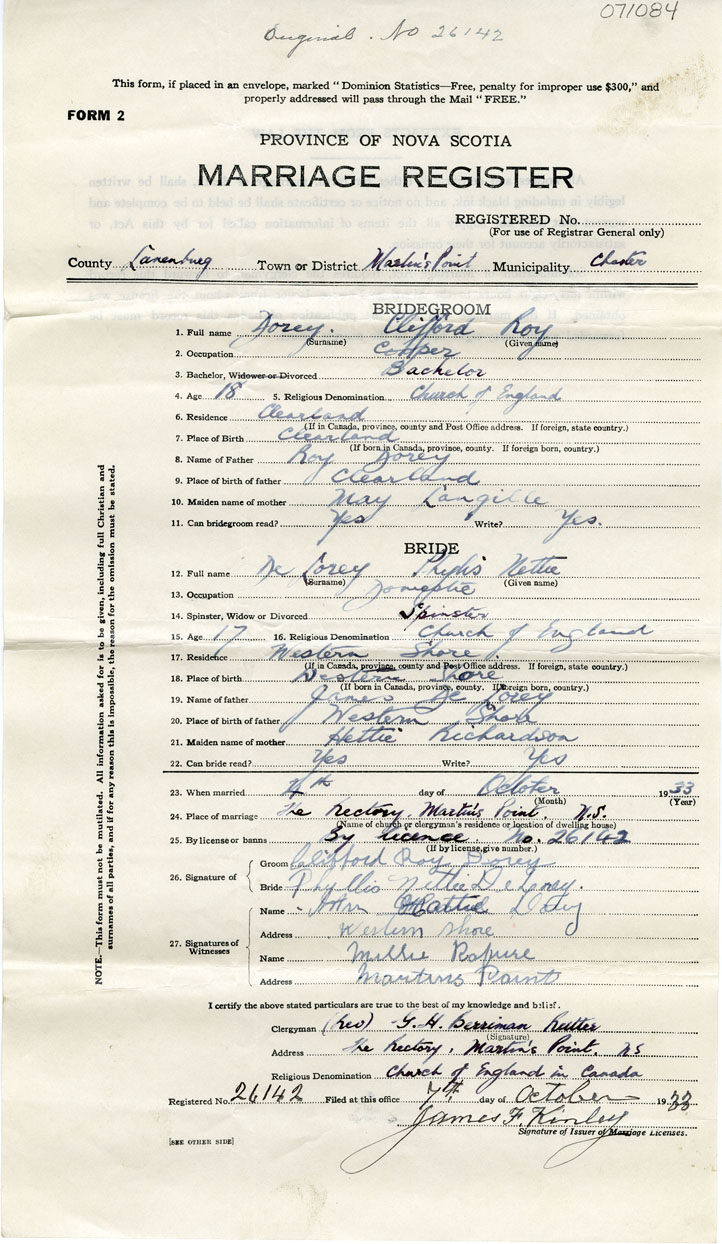 071084
Original. No 26142
This form, if placed in an envelope, marked "Dominion Statistics—Free, penalty for improper use $300," and
properly addressed will pass through the Mail "FREE."
FORM 2
PROVINCE OF NOVA SCOTIA
MARRIAGE REGISTER
REGISTERED No.
(For use of Registrar General only)
County Lunenburg Town or District Martin's Point Municipality Chester
BRIDEGROOM
1. Full name Dorey. Clifford Roy
(Surname) (Given name)
2. Occupation Cooper
3. Bachelor, Widower or Divorced Bachelor
4. Age 18 5. Religious Denomination Church of England
6. Residence Clearland
(If in Canada, province, county and Post Office address. If foreign, state country.)
7. Place of Birth Clearland
(If born in Canada, province, county. If foreign born, country.)
8. Name of Father Roy Dorey
9. Place of birth of father Clearland
10. Maiden name of mother May Langille
11. Can bridegroom read? Yes Write? Yes.
BRIDE
12. Full name De Lorey Phylis Nettie
(Surname) (Given name)
13. Occupation Domestic
14. Spinster, Widow or Divorced Spinster
15. Age 17 16. Religious Denomination Church of England
17. Residence Western Shore.
(If in Canada, province, county and Post Office address. If foreign, state country.)
18. Place of birth Western Shore
(If born in Canada, province, county. If foreign born, country.)
19. Name of father James De Lorey
20. Place of birth of father Western Shore
21. Maiden name of mother Hettie Richardson
22. Can bride read? Yes Write? Yes
23. When married 7th day of October 1933
(Month) (Year)
24. Place of marriage The Rectory, Martin's Point, N.S.
(Name of church or clergyman's residence or location of dwelling house)
25. By license or banns By licence No. 26142
(If by license, give number.)
26. Signature of Groom Clifford Roy Dorey
Bride Phyllis Nettie DeLorey.
27. Signatures of Witnesses
Name John Hattie
Address Western Shore
Name Millie
Address Martins Point
I certify the above stated particulars are true to the best of my knowledge and belief.
Clergyman (Rev) G. H. Berriman Rutter
(Signature)
Address The Rectory, Martin's Point, NS
Religious Denomination Church of England in Canada
Registered No. 26142 Filed at this office 7th day of October 1933
James F. Kinley
Signature of Issuer of Marriage Licenses.
[SEE OTHER SIDE]
NOTE.—This form must not be mutilated. All information asked for is to be given, including full Christian and
surnames of all parties, and if for any reason this is impossible, the reason for the omission must be stated.